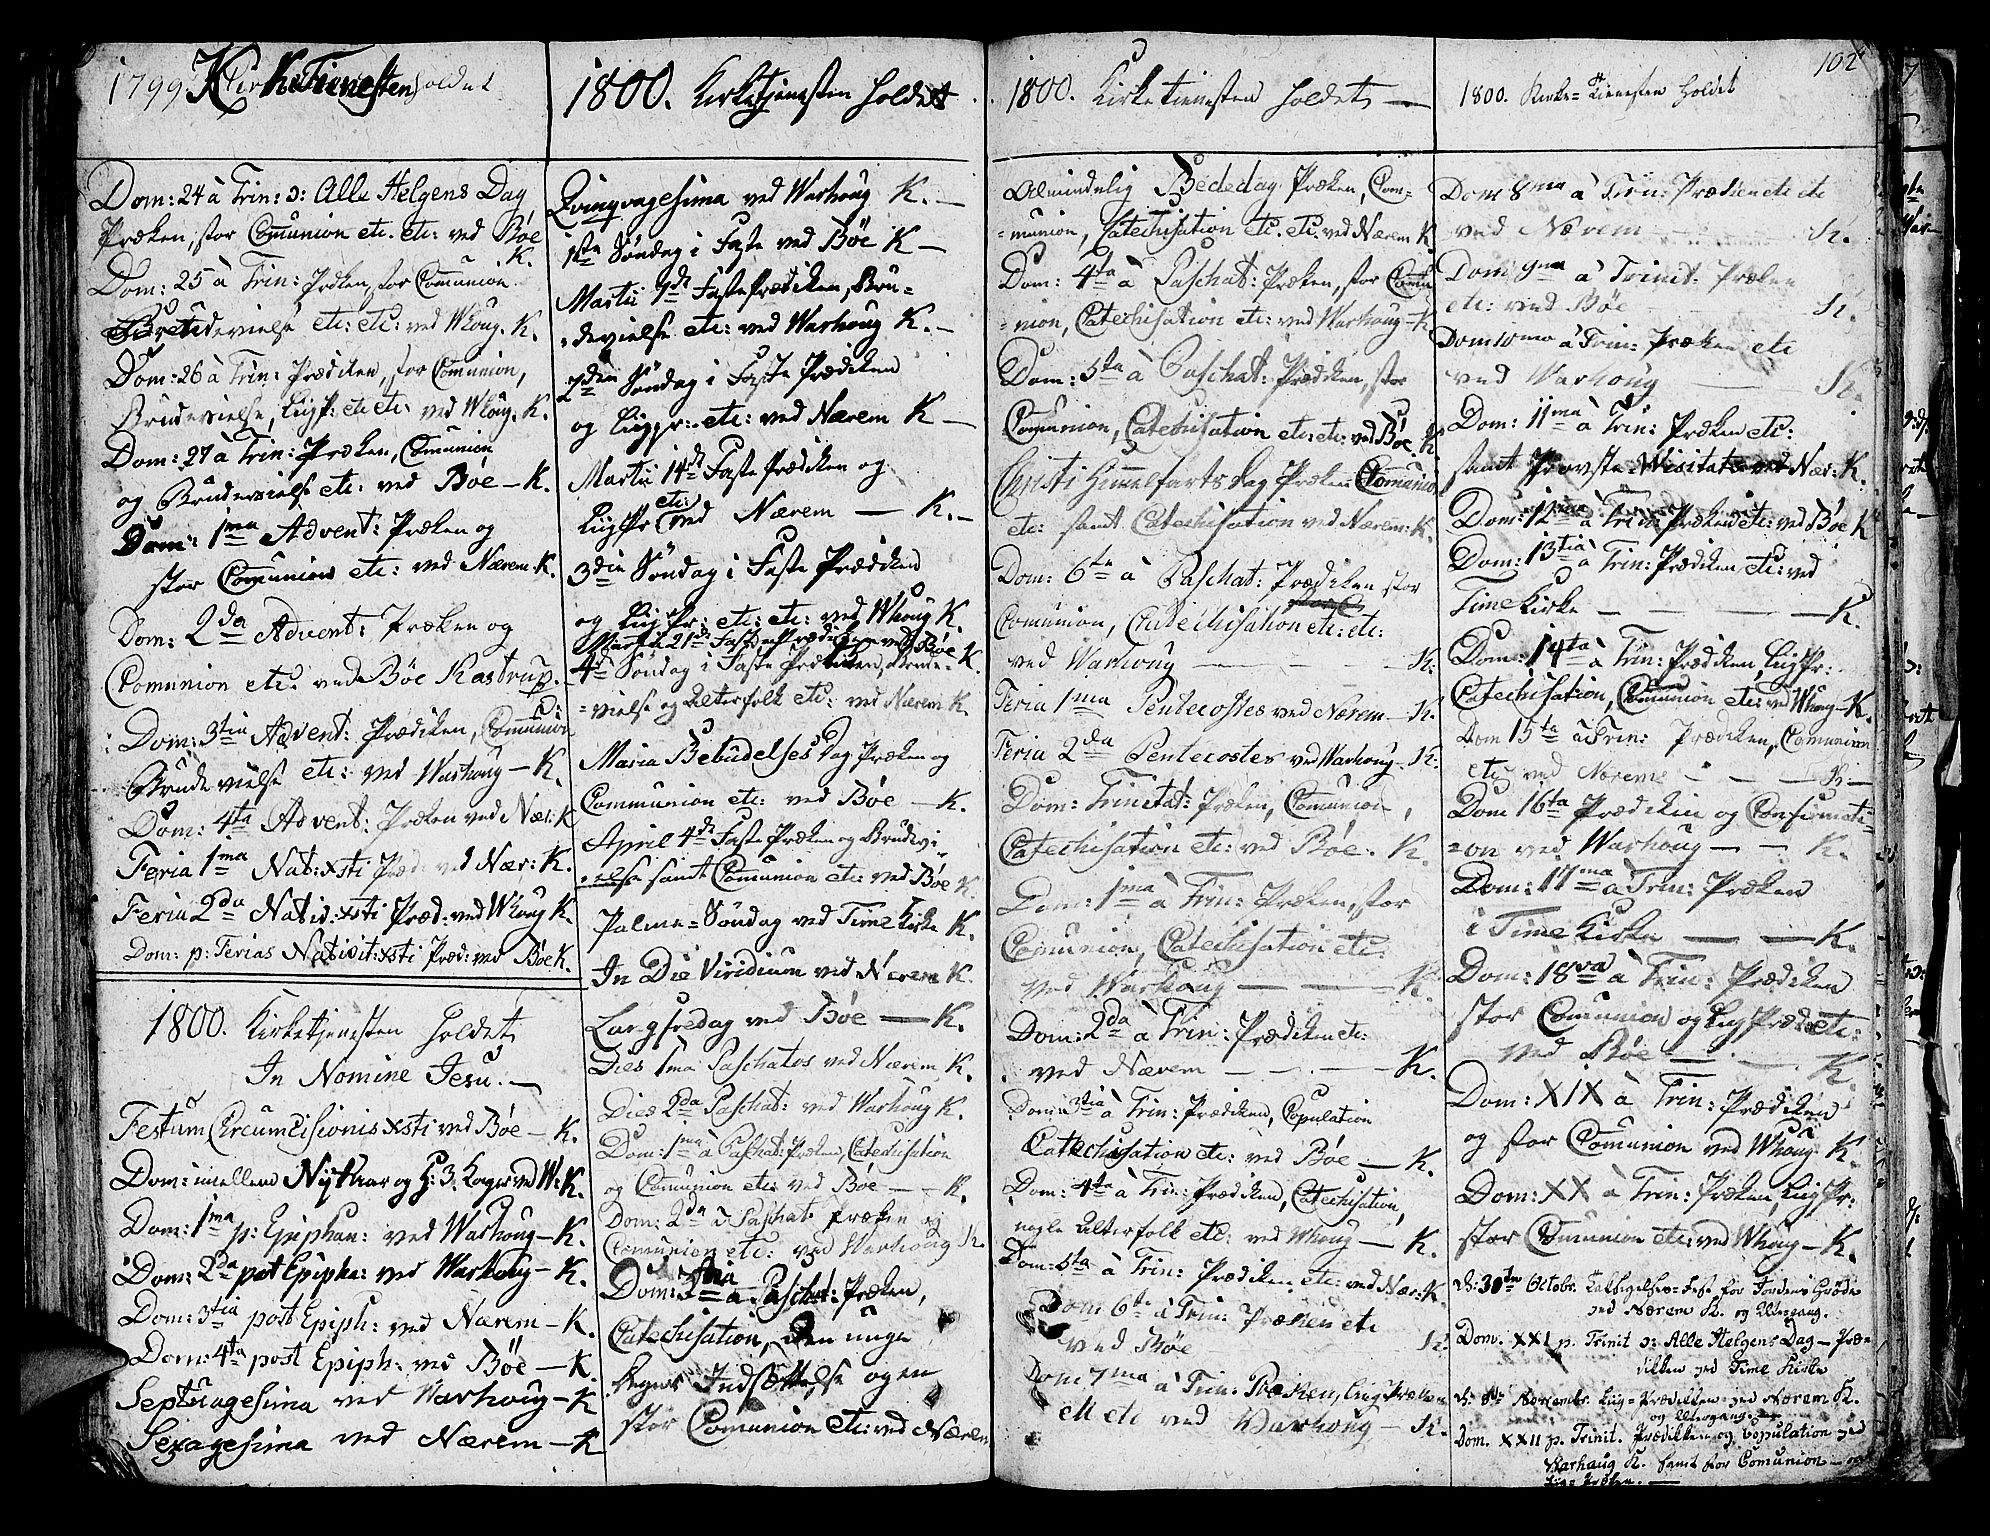 1799 Kirke Tienesten holdet
Dom: 24 à Trin: ɔ: Alle Helgens Dag
Præken, stor Comunion etc. etc: ved Bøe
K.
Dom: 25 à Trin: Præken, stor Comunion
devielse etc: etc: ved Whoug. K.
Dom: 26 à Trin: Prædiken, stor Comunion,
Brudevielse, Liigpr: etc etc: ved Whoug. K.
Dom: 27 à Trin: Præken, Comunion
og Brudevielse etc: ved Bøe – K.
Dom: 1ma Advent: Præken og
stor Comunion etc: ved Nærem. K.
Dom: 2da Advent: Præken og
Comunion etc: ved Bøe Kastrup.
Dom: 3tia Advent: Prædiken, Comunion
Brudevielse etc: ved Warhoug – K.
Dom: 4ta Advent: Præken ved Nær: K
Feria 1ma Nat: xsti Præd: ved Nær: K.
Feria 2da Nativ: xsti Præd: ved Whoug K.
Dom: p: Ferias Nativit: xsti Præd: ved Bøe K.
1800. Kirketjenesten holdet
In Nomine Jesu. –
Festum Circumcisionis xsti ved Bøe – K.
Dom: imellem Nytaar og H: 3. Konger ved W: K.
Dom: 1ma p: Epiphan: ved Warhoug – K.
Dom: 2da post Epipha: ved Warhoug – K.
Dom: 3tia post Epiph: ved Nærem – K.
Dom: 4ta post Epiph: ved Bøe – K.
Septuagesima ved Warhoug – K
Sexagesima ved Nærem – K
1800. Kirketjenesten holdet
Qvinqvagesima ved Warhoug K. –
1ste Søndag i Faste ved Bøe K –
Martii 7de Faste Prædiken, Bru=
=devielse etc: ved Warhoug K. –
2den Søndag i Faste Prædiken
og Liigpr: etc: ved Nærem K –
Martii 14de Faste Prædiken og
Liigpr etc: ved Nærem — K. –
3die Søndag i Faste Prædiken
og Liigpr: etc: etc: ved Whoug K.
Martii 21de Faste Prædiken ved Bøe K
4de Søndag i Faste Prædiken, Brude=
=vielse og Alterfolk etc: ved Nærem K.
Maria Bebudelses Dag Præken og
Communion etc: ved Bøe – K.
April 4de Faste Præken og Brudevi=
=else samt Comunion etc: ved Bøe K.
Palme=Søndag ved Time Kirke K.
In Die Viridium ved Nærem K.
Langfredag ved Bøe — K.
Dies 1ma Paschatos ved Nærem K.
Dies 2da Paschat: ved Warhoug K.
Dom: 1ma à Paschat: Præken, Catechisation
og Comunion etc: ved Bøe – – K.
Dom: 2da à Paschat: Præken og
Comunion etc: ved Warhoug K
Dom: 3tia à Paschat: Præken,
Catechisation, den unge
Degns Indsættelse og en
stor Comunion etc: ved Nærem
1800. Kirketienesten holdet —
Almindelig Bededag Præken, Com=
=munion, Catechisation etc. etc. ved Nærem K
Dom: 4ta à Paschat: Præken, stor Comu
=nion, Catechisation etc: ved Warhoug – K
Dom: 5ta à Paschat: Prædiken, stor
Comunion, Catechisation etc: etc: ved Bøe K
Christi Himmelfarts dag Præken Comunion
etc: samt Catechisation ved Nærem: K.
Dom: 6ta à Paschat: Prædiken stor
Comunion, Catechisation etc: etc:
ved Warhoug — – – – K.
Feria 1ma Pentecostes ved Nærem – K.
Feria 2da Pentecostes ved Warhoug – K:
Dom: Trinitat: Præken, Comunion,
Catechisation etc: ved Bøe. K.
Dom: 1ma à Trin: Præken, stor
Comunion, Catechisation etc:
ved Warhoug — — – K.
Dom: 2da à Trin: Prædiken etc:
ved Nærem – – – – K.
Dom: 3tia à Trin: Prædiken, Copulation
Catechisation etc: ved Bøe — K.
Dom: 4ta à Trin: Prædiken, Catechisation,
nogle Alterfolk etc: ved Whoug — K.
Dom: 5ta à Trin: Prædiken etc: ved Nær: K.
Dom 6te à Trin: Præken etc
ved Bøe K.
Dom 7ma à Trin: Præken, Liig Præken
etc etc ved Warhoug — K.
102
1800. Kirke=Tienesten holdet
Dom 8ma à Trin: Prædiken etc etc
ved Nærem K.
Dom 9ma à Trinit: Præken
etc: ved Bøe K.
Dom 10mo à Trin: Præken etc
ved Warhoug — K.
Dom: 11ma à Trin: Præken etc:
samt Provste Wisitats ved Nær: K.
Dom: 12ma à Trin: Præken etc: ved Bøe K
Dom: 13tia à Trin: Prædiken etc: ved
Time Kirke – – – – K.
Dom: 14ta à Trin: Prædiken, Liigpr:
Catechisation, Comunion etc: ved Whoug – K.
Dom 15ta à Trin: Prædiken, Comunion
etc ved Nærem – – – K –
Dom 16ta Prædiken og Confirmati=
=on ved Warhoug – – K.
Dom: 17ma à Trin: Præken
i Time Kirke — — K.
Dom: 18va à Trin: Prædiken
stor Comunion og Liig Præk etc:
ved Bøe — – K.
Dom: XIX à Trin: Prædiken
og stor Comunion ved Whoug K.
Dom: XX à Trin: Præken, Liigpr:
stor Comunion etc: ved Whoug – K.
d: 30te Octobr. Taksigelses=Fest for Jordens Grøde
ved Nærem K. og Altergang.
Dom. XXI p. Trinit ɔ: Alle Helgens Dag – Præ=
diken ved Time Kirke
d: 8de Novembr. Liig=Prædiken ved Nærem K.
og Altergang.
Dom. XXII p. Trinit. Prædiken og Copulation ved
Warhaug K. samt stor Comunion – og
Liig=Præken. —